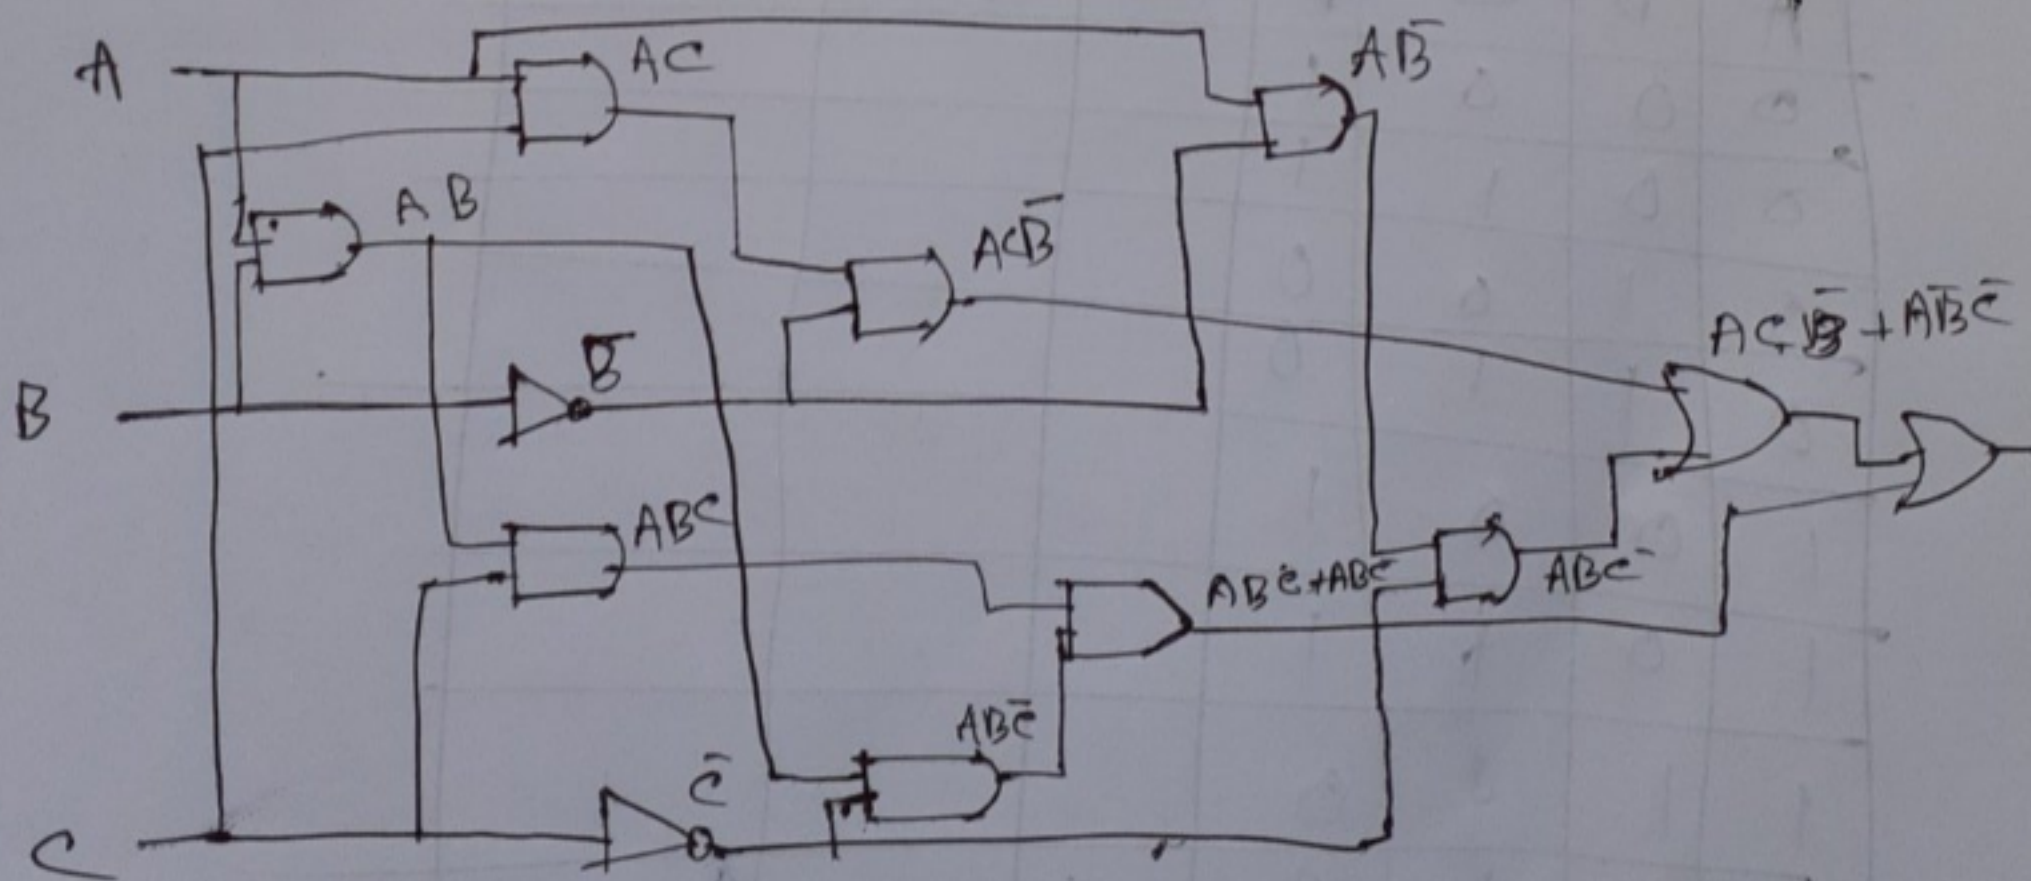 A
AC
AB̅
AB
ACB̅
B
B̅
ACB̅+AB̅C̅
ABC
ABC̅+ABC
ABC̅
ABC̅
C̅
C